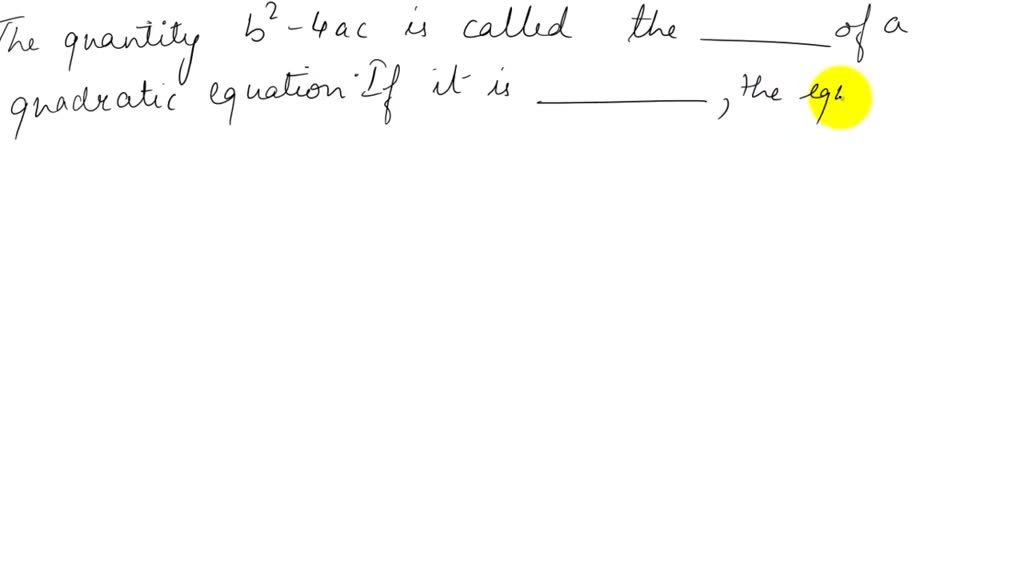 The quantity b² - 4ac is called the ______ of a
quadratic equation. If it is ________, the equ